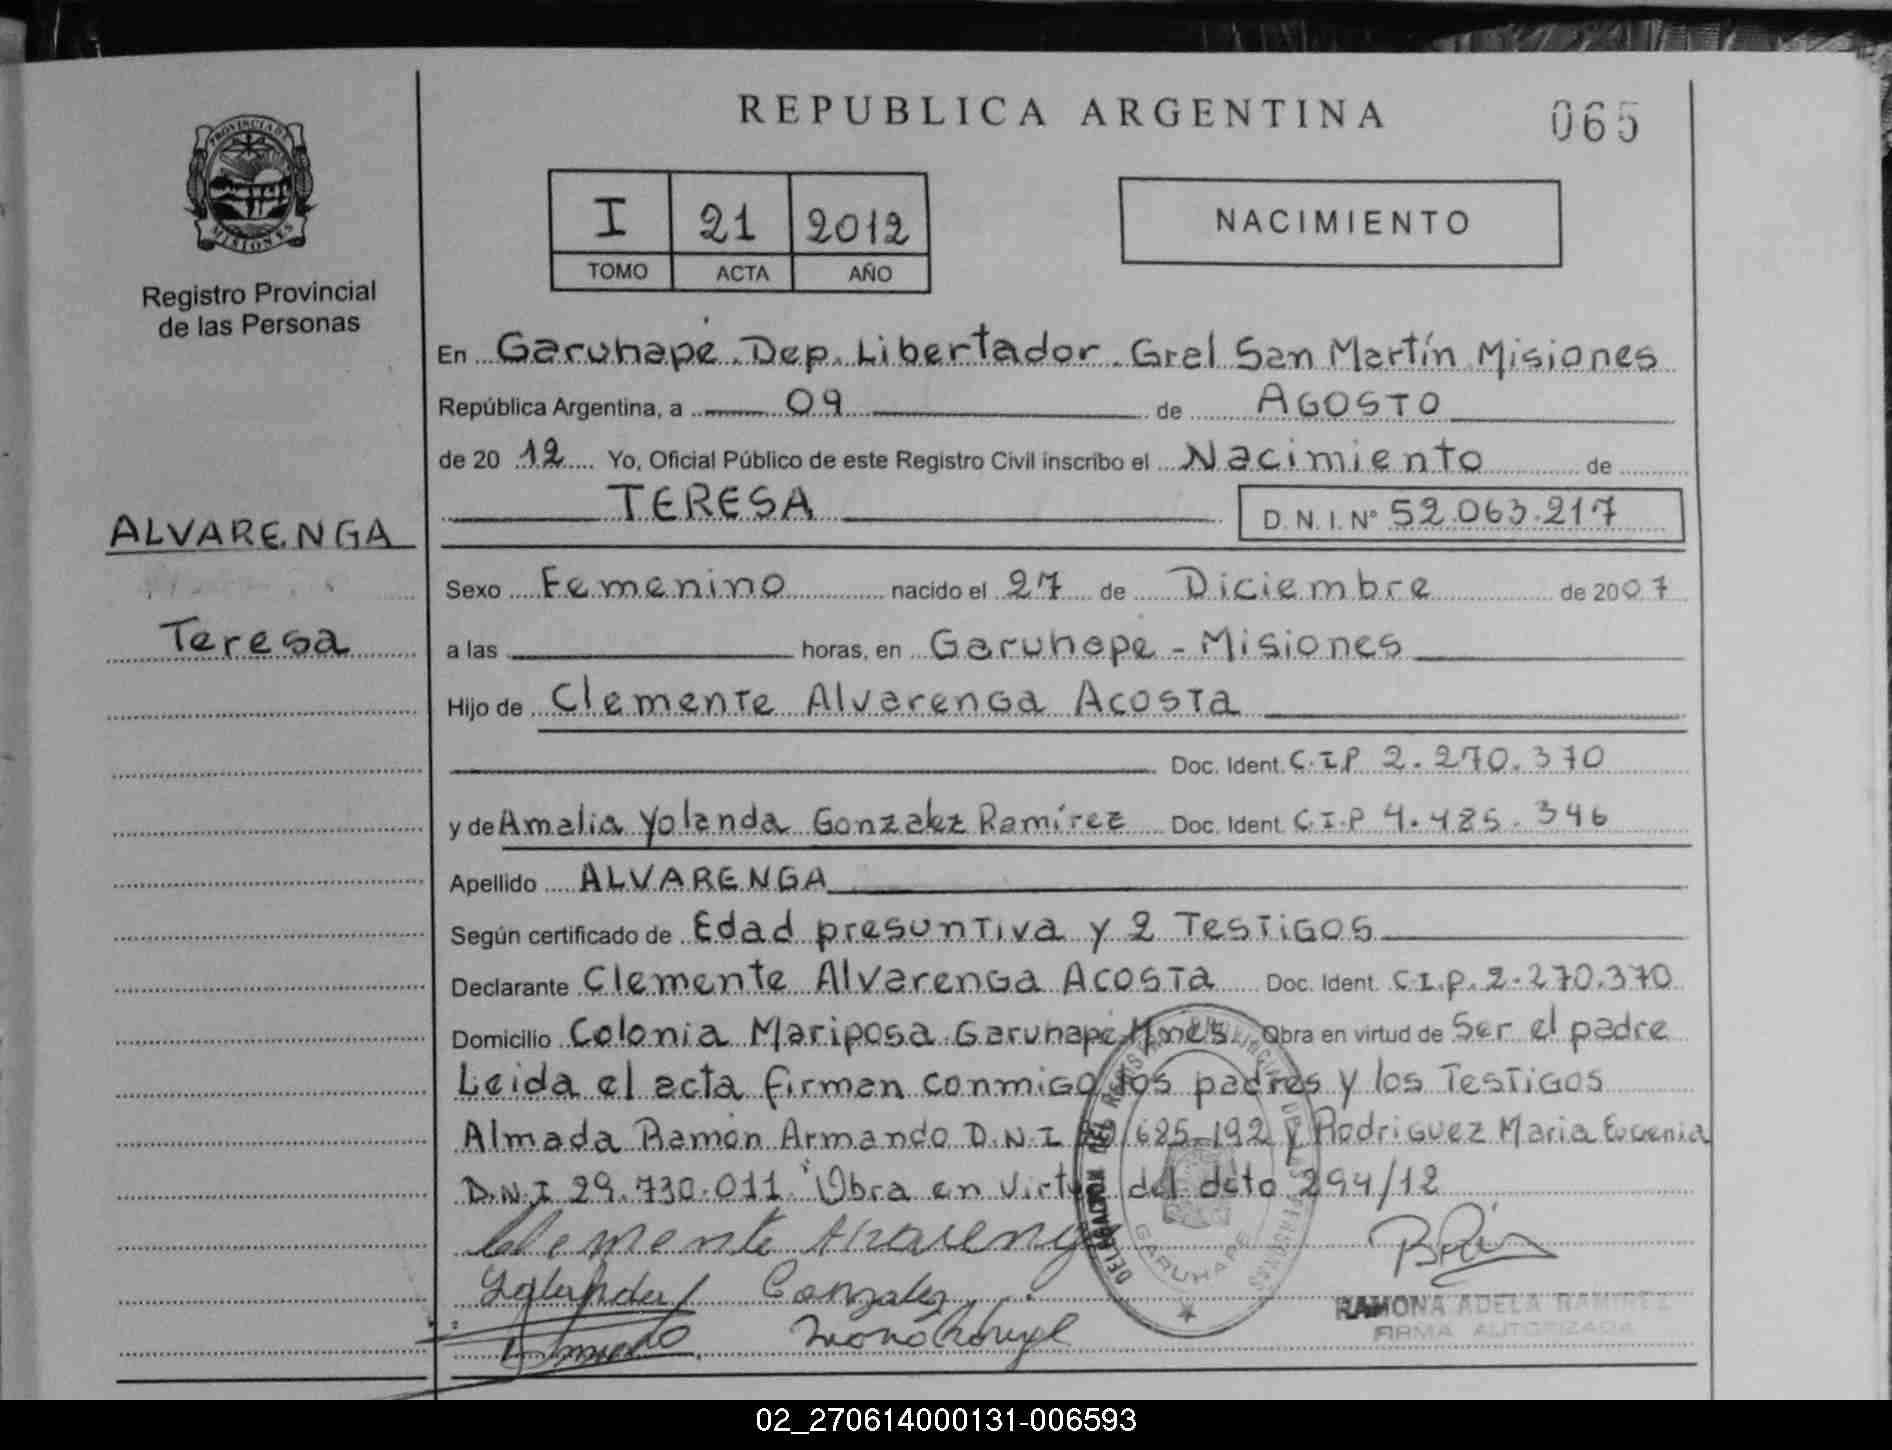 REPUBLICA ARGENTINA
065
PROVINCIA DE
MISIONES
Registro Provincial
de las Personas
I 21 2012
TOMO ACTA AÑO
NACIMIENTO
En Garuhapé Dep. Libertador Gral San Martín Misiones
República Argentina, a 09 de AGOSTO
de 20 12 Yo, Oficial Público de este Registro Civil inscribo el Nacimiento de
TERESA D.N.I. Nº 52.063.217
ALVARENGA
Teresa
Sexo Femenino nacido el 27 de Diciembre de 2007
a las horas, en Garuhapé - Misiones
Hijo de Clemente Alvarenga Acosta
Doc. Ident. C.I.P 2.270.370
y de Amalia Yolanda Gonzalez Ramírez Doc. Ident. C.I.P 4.485.346
Apellido ALVARENGA
Según certificado de Edad presuntiva y 2 Testigos
Declarante Clemente Alvarenga Acosta Doc. Ident. C.I.P. 2.270.370
Domicilio Colonia Mariposa Garuhapé Mnes Obra en virtud de Ser el padre
Leida el acta firman conmigo los padres y los Testigos
Almada Ramón Armando D.N.I 625-192 y Rodriguez Maria Eugenia
D.N.I 29.730.011 Obra en virtud del dcto 294/12
Clemente Alvarenga
Yolanda Gonzalez
RAMONA ADELA RAMIREZ
FIRMA AUTORIZADA
DELEGACION DEL REGISTRO PROVINCIAL DE LAS PERSONAS
GARUHAPE
02_270614000131-006593